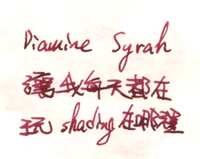 Diamine Syrah
讓我每天都在
玩 shading 在哪裡